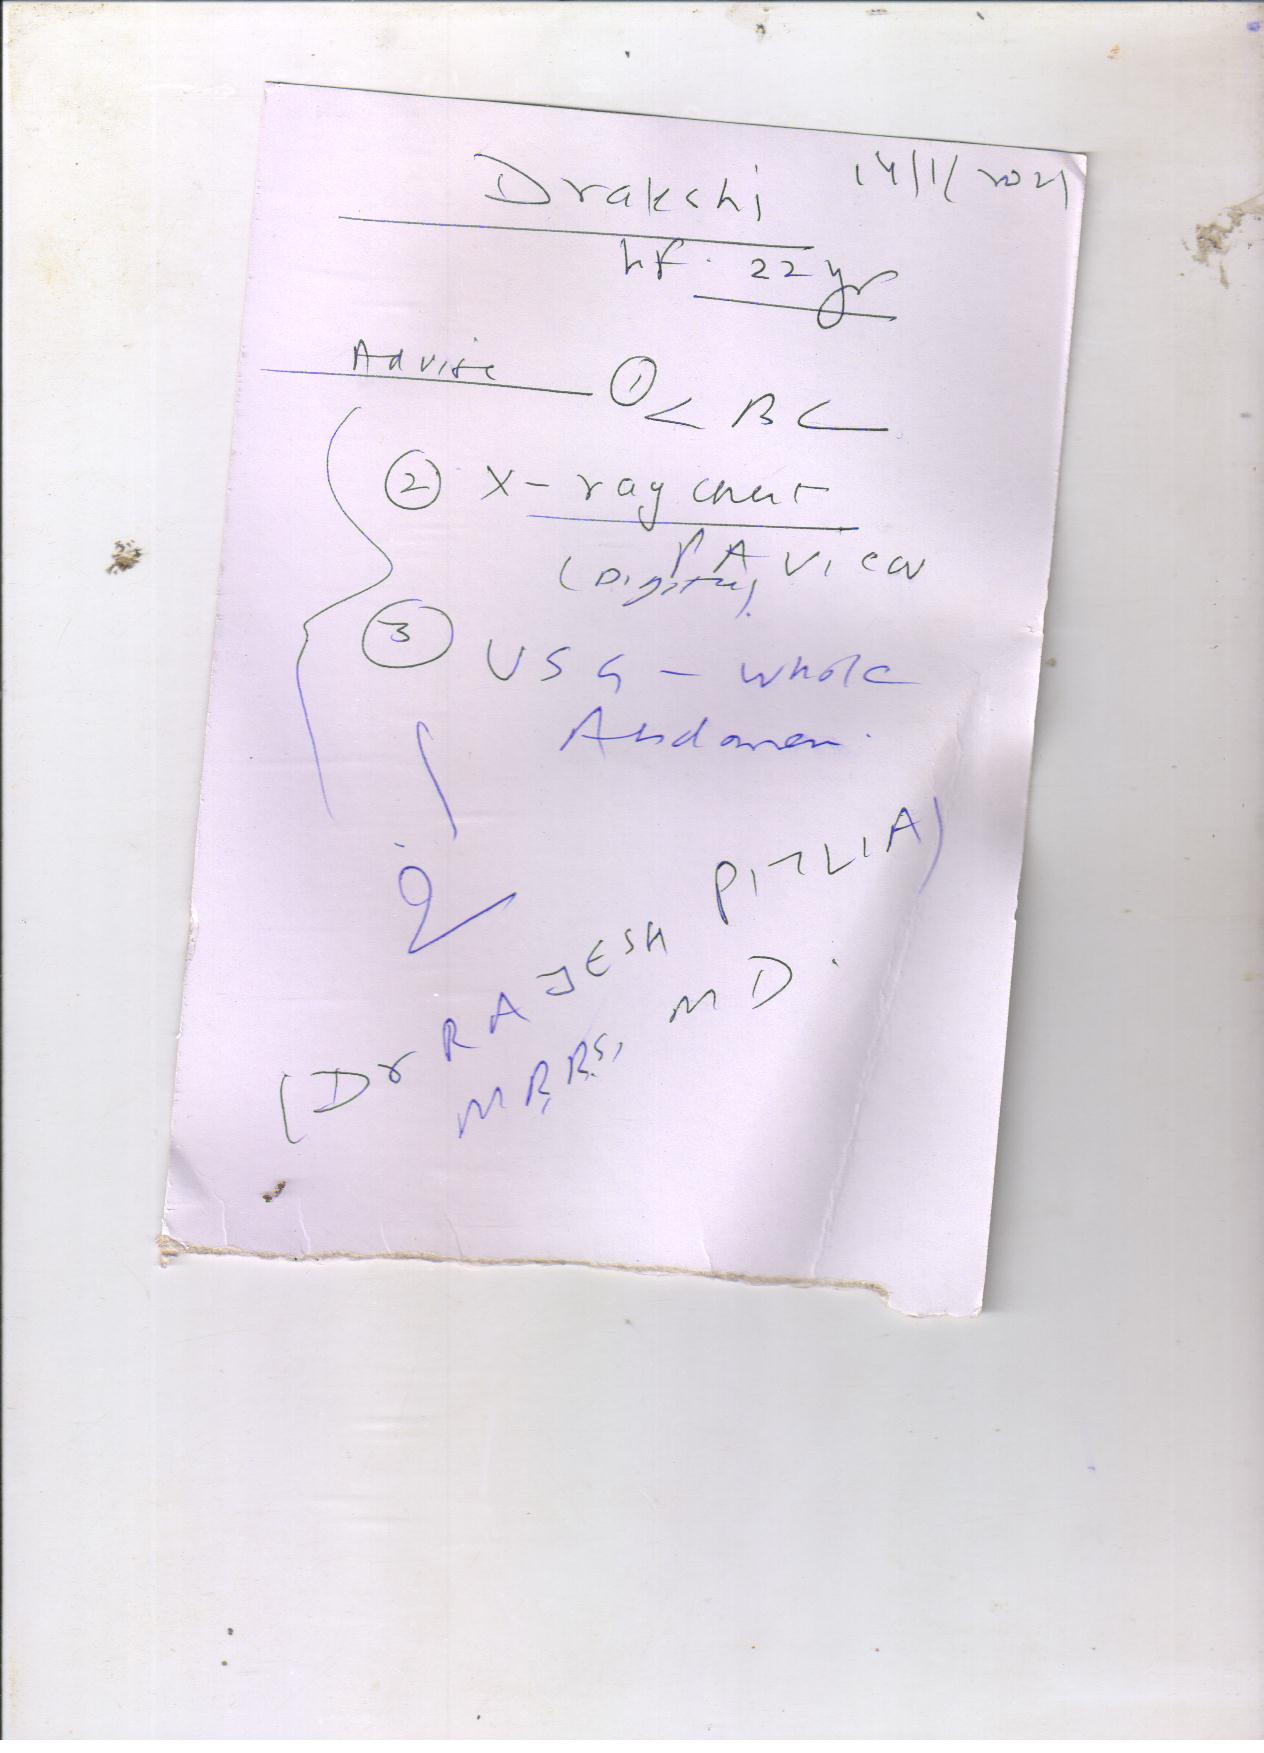 14/1/2021
Drakshi
hf. 22 yr
Advise ① CBC
② X-ray chest
PA View
(Digital)
③ USG - whole
Abdomen.
(Dr RAJESH PITLIA)
MBBS, MD.